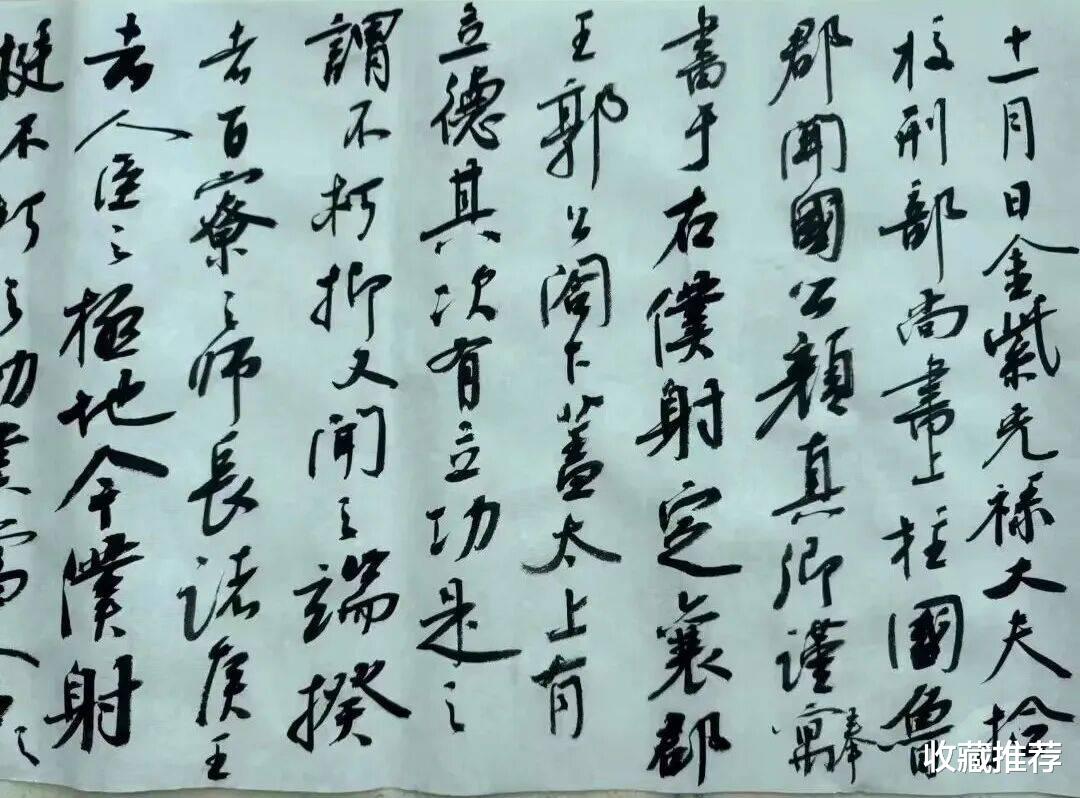 十一月日金紫光禄大夫檢
校刑部尚書上柱國魯
郡開國公顏真卿謹寓奉
書于右僕射定襄郡
王郭公閣下蓋太上有
立德其次有立功是之
謂不朽抑又聞之端揆
者百寮之師長諸侯王
者人臣之極地今僕射
挺不朽之功業當人
收藏推荐